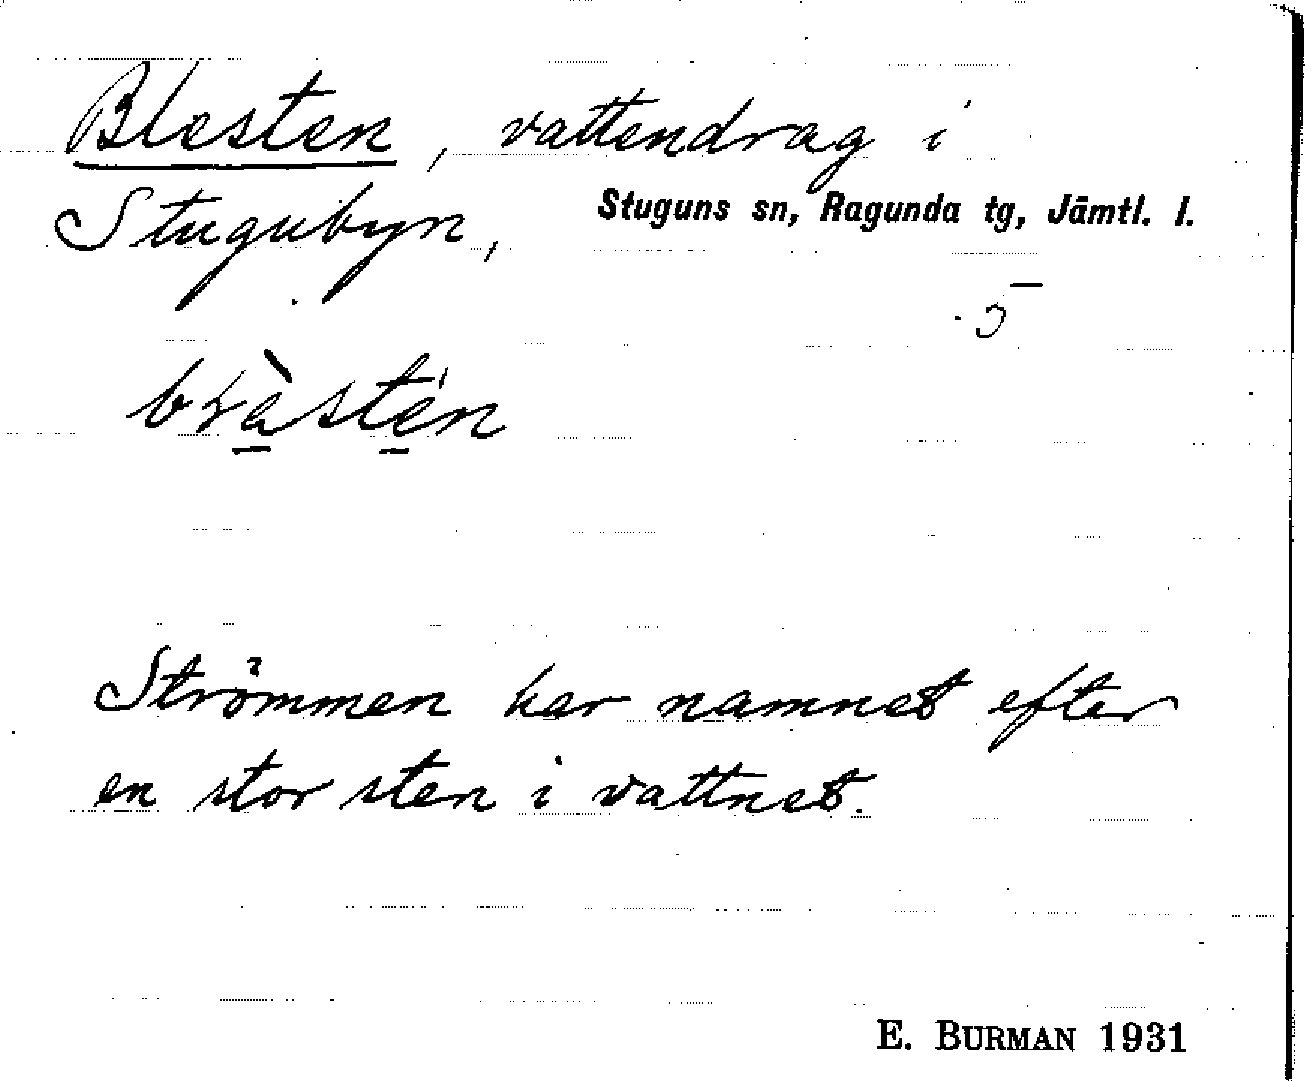 Blesten, vattendrag i
Stugubyn, Stuguns sn, Ragunda tg, Jämtl. l.
5
Strömmen har namnet efter
en stor sten i vattnet.
E. BURMAN 1931